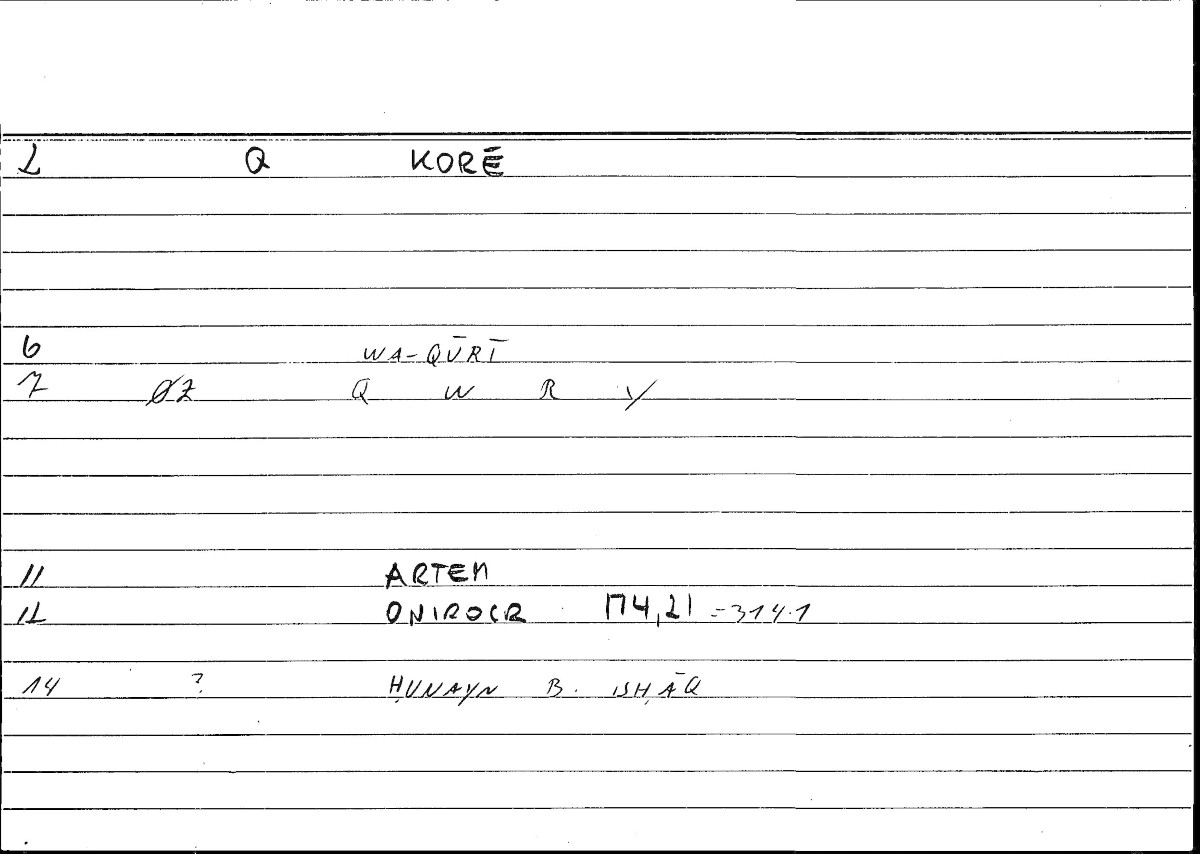 2 Q KORĒ
6 WA-QŪRĪ
7 ØZ Q W R Y
11 ARTEM
12 ONIROCR 174,21 =314.1
14 ? ḤUNAYN B. ISḤĀQ